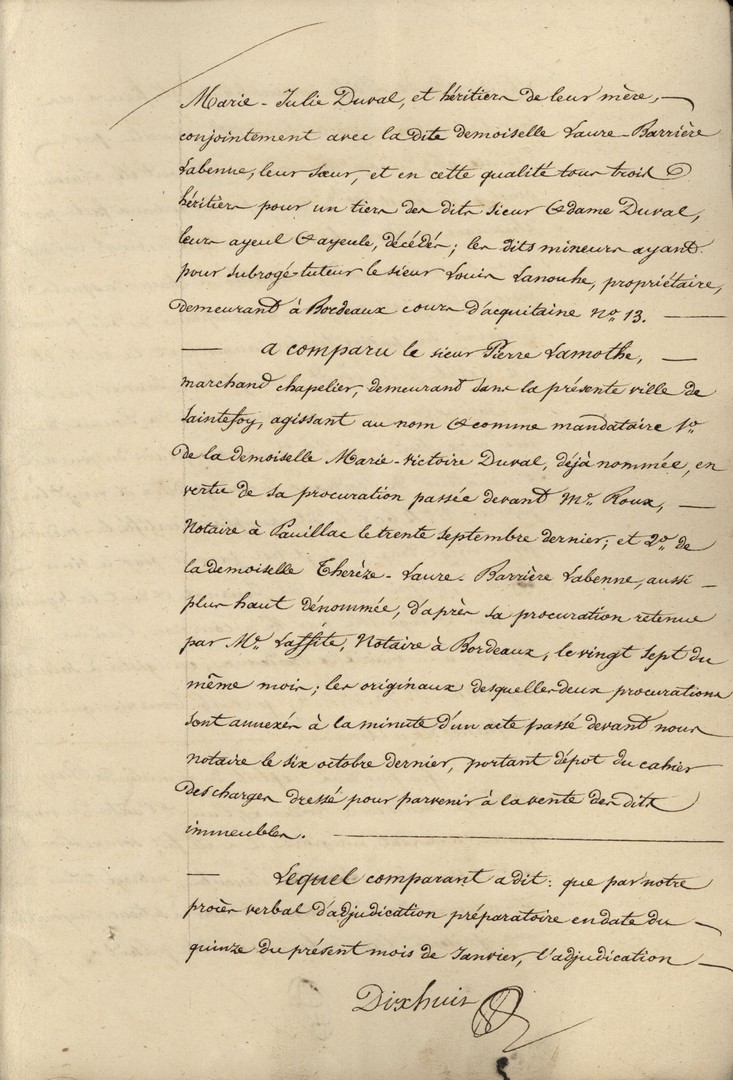 Marie-Julie Duval, et héritiers de leur mère, —
conjointement avec la dite demoiselle Laure-Barrière
Labenne, leur sœur, et en cette qualité tous trois
héritiers pour un tiers des dits sieur & dame Duval,
leurs ayeul & ayeule, décédés; les dits mineurs ayant
pour subrogé tuteur le sieur Louis Lanouhe, propriétaire,
demeurant à Bordeaux cours d'acquitaine n.o 13. —
— a comparu le sieur Pierre Lamothe, —
marchand chapelier, demeurant dans la présente ville de
Saintefoy, agissant au nom & comme mandataire 1.o
de la demoiselle Marie-victoire Duval, déjà nommée, en
vertu de sa procuration passée devant M.e Roux, —
Notaire à Pauillac le trente septembre dernier; et 2.o de
la demoiselle Therèze-Laure-Barrière Labenne, aussi —
plus haut dénommée, d'après sa procuration retenue
par M.e Laffite, Notaire à Bordeaux, le vingt sept du
même mois; les originaux desquelles deux procurations
sont annexés à la minute d'un acte passé devant nous
notaire le six octobre dernier, portant dépot du cahier
des charges dressé pour parvenir à la vente des dits
immeubles. —
— Lequel comparant a dit: que par notre
procès verbal d'adjudication préparatoire en date du —
quinze du présent mois de Janvier, l'adjudication —
Dixhuit